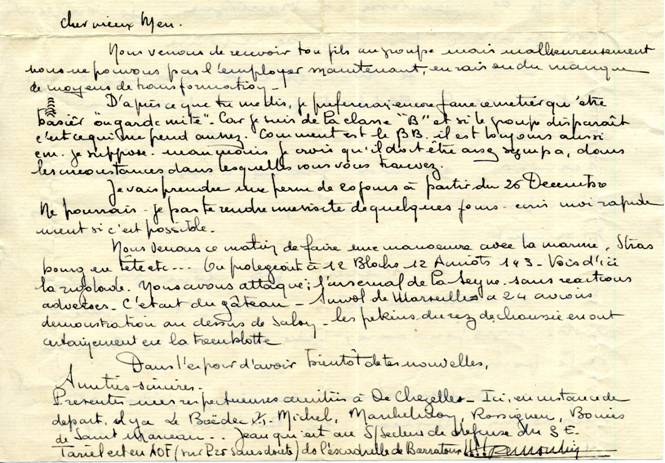 Cher vieux Men.
Nous venons de recevoir ton fils au groupe mais malheureusement
nous ne pouvons pas l'employer maintenant, en raison du manque
de moyens de transformation -
D'après ce que tu me dis, je préfèrerai encore faire ce métier qu'être
basier "ou garde mite". Car je suis de la classe "B" et si le groupe disparaît
c'est ce qui me pend au nez. Comment est le BB. il est toujours aussi
em. je suppose. néanmoins je crois qu'il doit être assez sympa, dans
les circonstances dans lesquelles vous vous trouvez.
Je vais prendre une perme de 20 jours à partir du 26 Décembre
Ne pourrais-je pas te rendre une visite de quelques jours - écris moi rapide
ment si c'est possible.
Nous venons ce matin de faire une manoeuvre avec la marine, Stras
bourg en tête etc... On protégeait à 12 Blochs 12 Amiots 143 - Vois d'ici
la rigolade. Nous avons attaqué l'arsenal de La Seyne. sans réactions
adverses - C'était du gâteau - Survol de Marseille à 24 avions
démonstration au dessus de Salon - les pékins du rez de chaussée en ont
certainement eu la tremblotte
Dans l'espoir d'avoir bientôt de tes nouvelles,
Amitiés sincères.
Présentes mes respectueuses amitiés à De Chezelles - Ici, en instance de
départ, il y a Le Michel, Rossigneu,
de Saint ... Jean qui est au S/Secteur de défense du S E.
est en AOF (sur P25 sans doute) de l'escadrille de